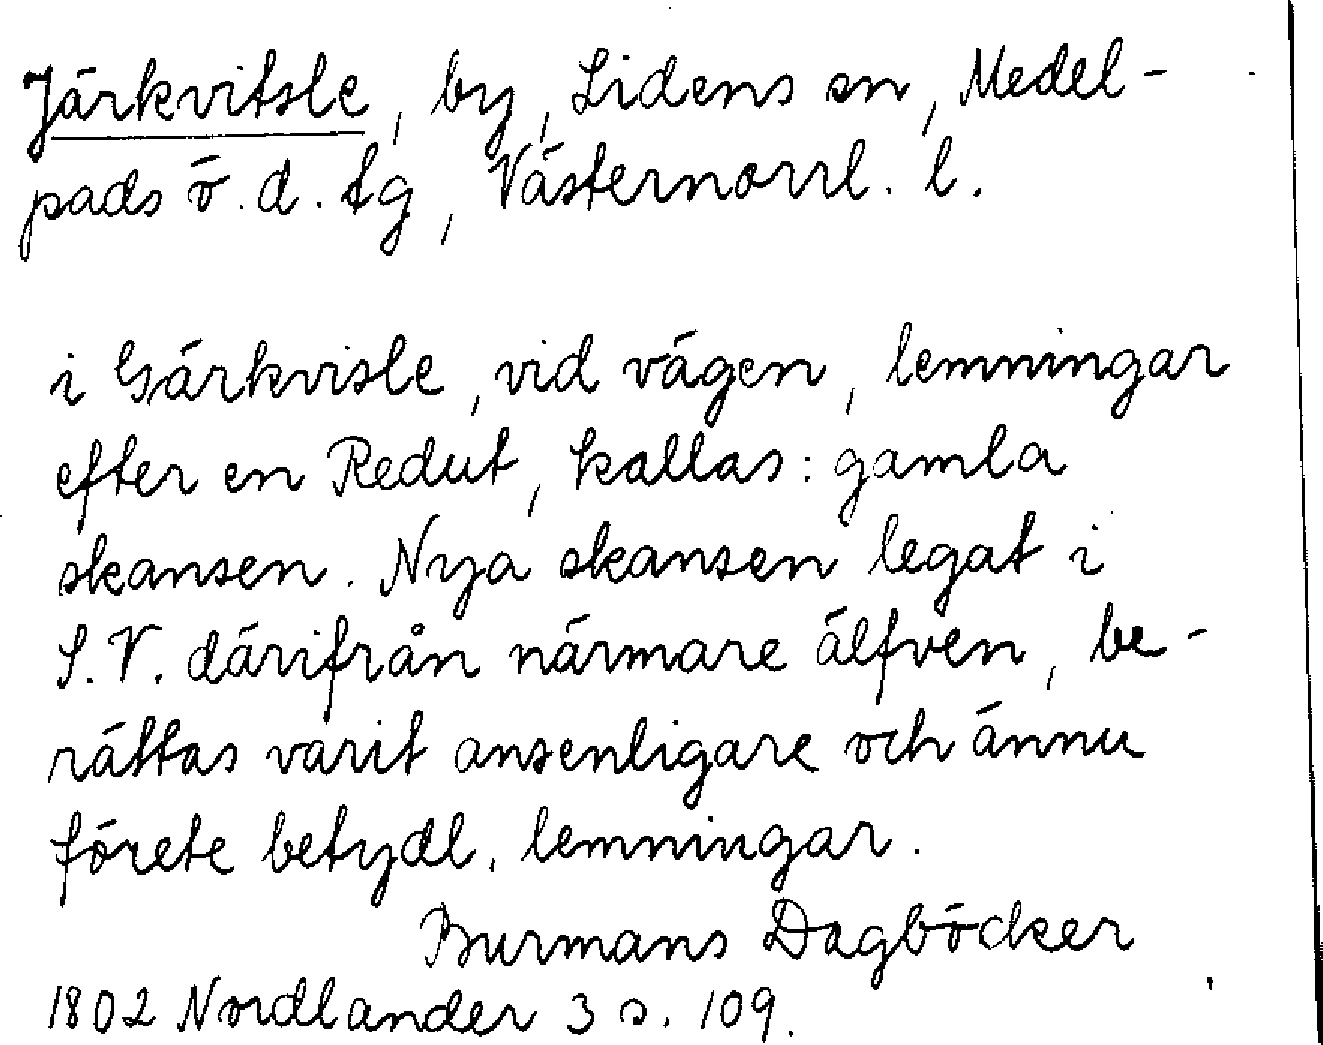 Järkvitsle, by, Lidens sn, Medel-
pads ö. d. tg, Västernorrl. l.
i Gärkvisle, vid vägen, lemningar
efter en Redut, kallas: gamla
skansen. Nya skansen legat i
S.V. därifrån närmare älfven, be-
rättas varit ansenligare och ännu
förete betydl. lemningar.
Burmans Dagböcker
1802 Nordlander 3 s. 109.